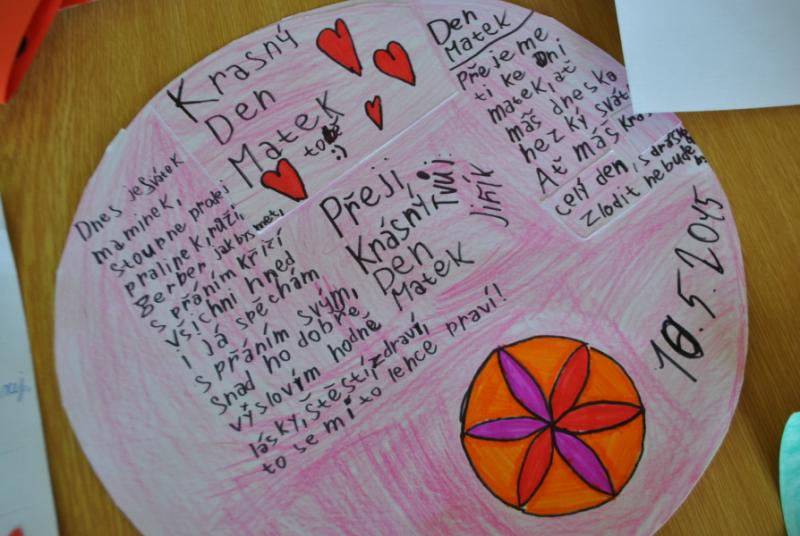 Krasný
Den
Matek
Den
Matek
Přejeme
ti ke Dni
matek, ať
máš dneska
hezký svát
Ať máš krá
celý den,
zlodit nebude
Přeji,
Krásný
Den
Matek
tvůj
Jiřík
Dnes je svátek
maminek,
stoupne prodej
pralinek, růží,
gerber, jakbysmet,
s přáním kříží
všichni hned
i já spěchám
s přáním svým,
snad ho dobře
výslovím hodně
lásky, štěstí, zdraví,
to se mi to lehce praví!
10.5.2015